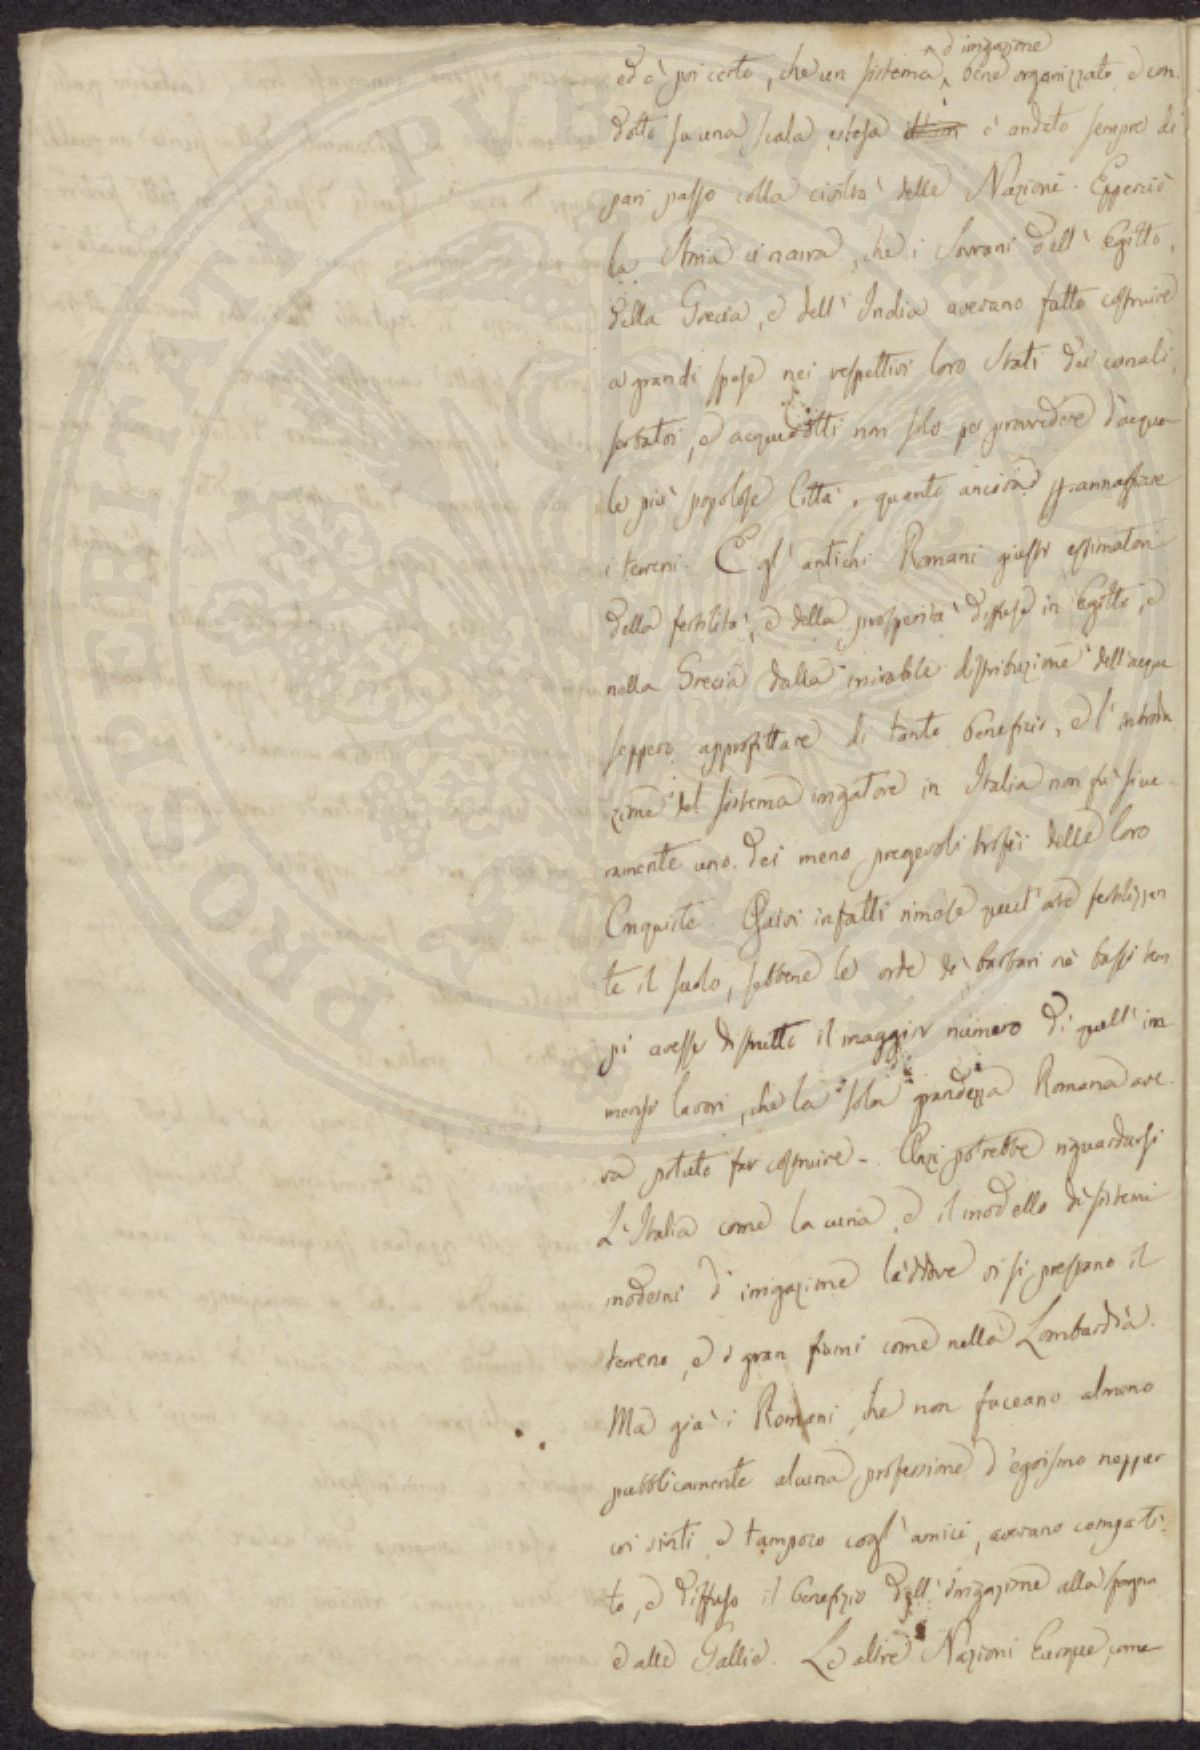 d'irrigazione
ed è poi certo, che un sistema bene organizzato, e con
dotto su una scala estesa è andato sempre di
pari passo colla civiltà delle Nazioni. Epperciò
la Storia ci narra, che i Sovrani dell'Egitto,
della Grecia, e dell'India avevano fatto costruire
a grandi spese nei respettivi loro Stati dei canali,
serbatoi, e acquedotti non solo per provvedere d'acqua
le più popolose Città, quanto ancora per annaffiare
i terreni. E gl'antichi Romani giusti estimatori
della fertilità, e della prosperità diffusa in Egitto, e
nella Grecia dalla mirabile distribuzione dell'acqua
seppero approfittare di tanto benefizio, e l'introdu
zione del sistema irrigatore in Italia non fu sicu-
ramente uno dei meno pregevoli trofei delle loro
Conquiste. Quivi infatti rimase quest'arte fertilizzan
te il suolo, sebbene le orde de' barbari ne' bassi tem
pi avesse distrutto il maggior numero di quell'im
mensi lavori, che la sola grandezza Romana ave
va potuto far costruire. Anzi potrebbe riguardarsi
L'Italia come la cuna, e il modello de' sistemi
moderni d'irrigazione laddove vi si prestano il
terreno, e i gran fiumi come nella Lombardia.
Ma già i Romani che non faceano almeno
pubblicamente alcuna professione d'egoismo neppur
coi vinti e tampoco cogl'amici, avevano comparti
to, e diffuso il benefizio dell'irrigazione alla Spagna
e alle Gallie. Le altre Nazioni Europee, come
PROSPERITATI PUBLICAE